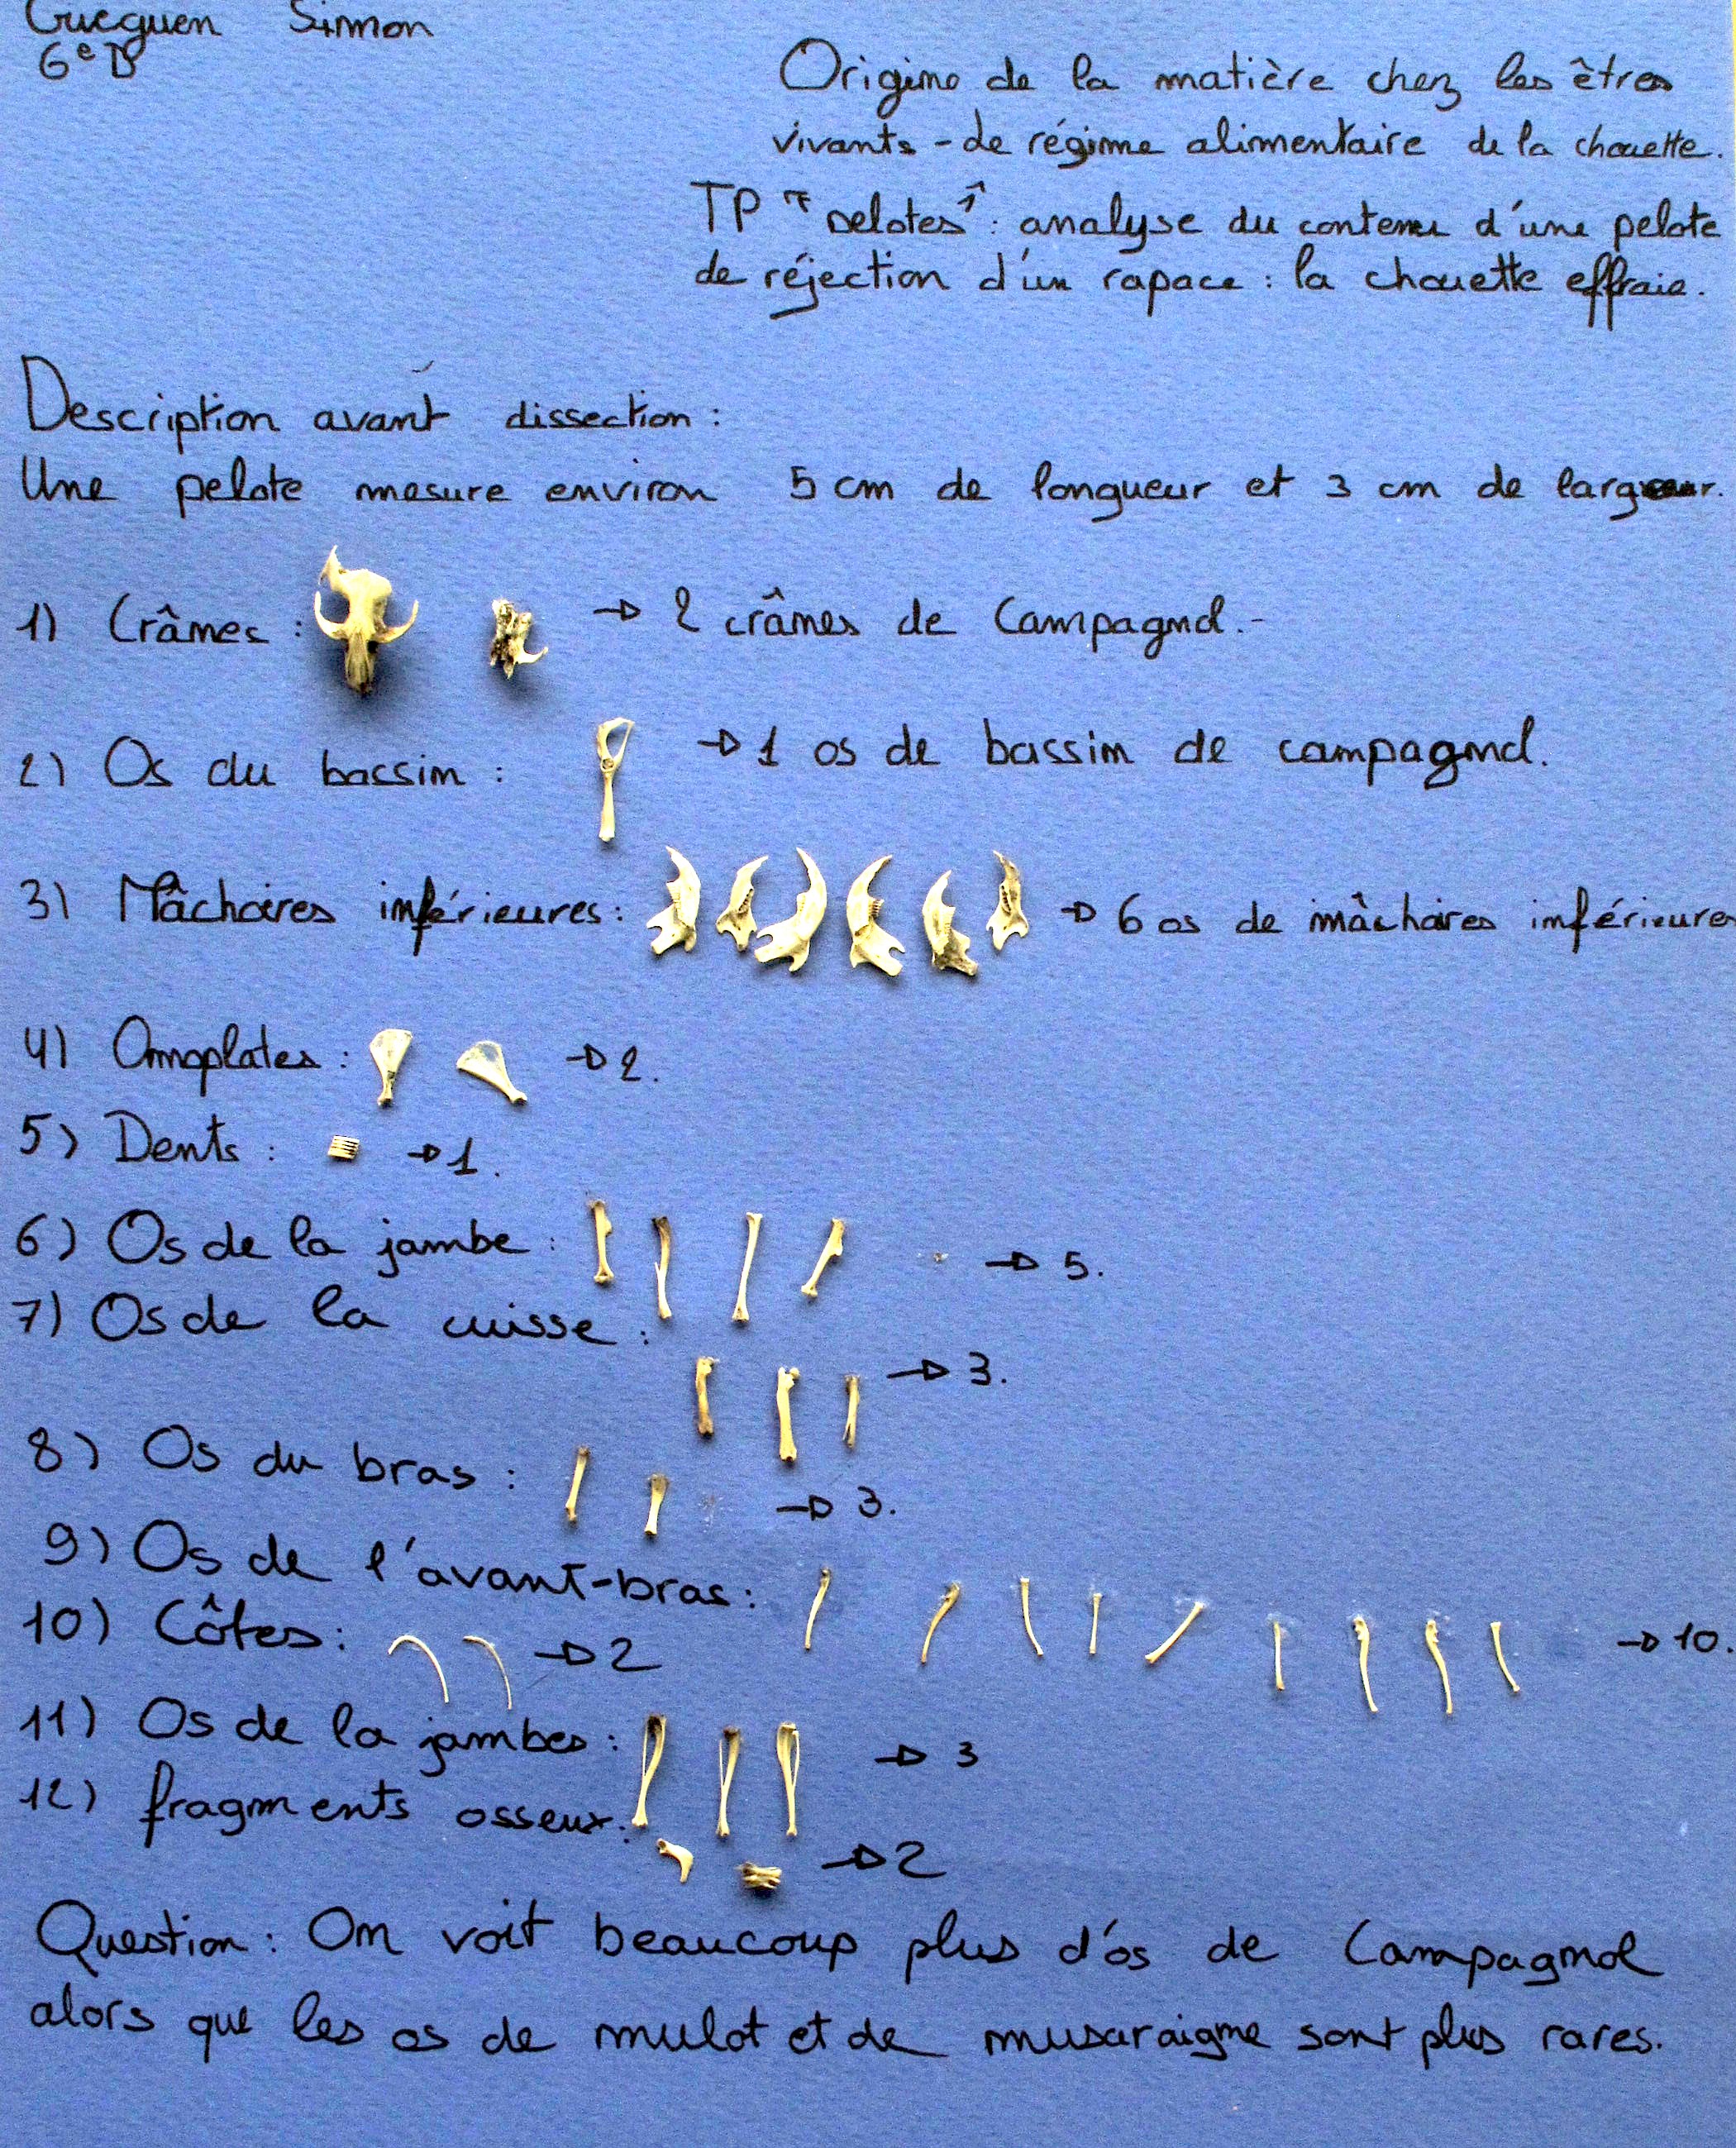 Gueguen Simon
6e B
Origine de la matière chez les êtres
vivants - de régime alimentaire de la chouette.
TP "pelotes": analyse du contenu d'une pelote
de réjection d'un rapace : la chouette effraie.
Description avant dissection :
Une pelote mesure environ 5 cm de longueur et 3 cm de largeur.
1) Crânes : → 2 crânes de Campagnol.-
2) Os du bassin : → 1 os de bassin de campagnol.
3) Mâchoires inférieures : → 6 os de mâchoires inférieures
4) Omoplates : → 2.
5) Dents : → 1.
6) Os de la jambe : → 5.
7) Os de la cuisse : → 3.
8) Os du bras : → 3.
9) Os de l'avant-bras : → 10.
10) Côtes : → 2
11) Os de la jambes : → 3
12) fragments osseux : → 2
Question : On voit beaucoup plus d'os de Campagnol
alors que les os de mulot et de musaraigne sont plus rares.